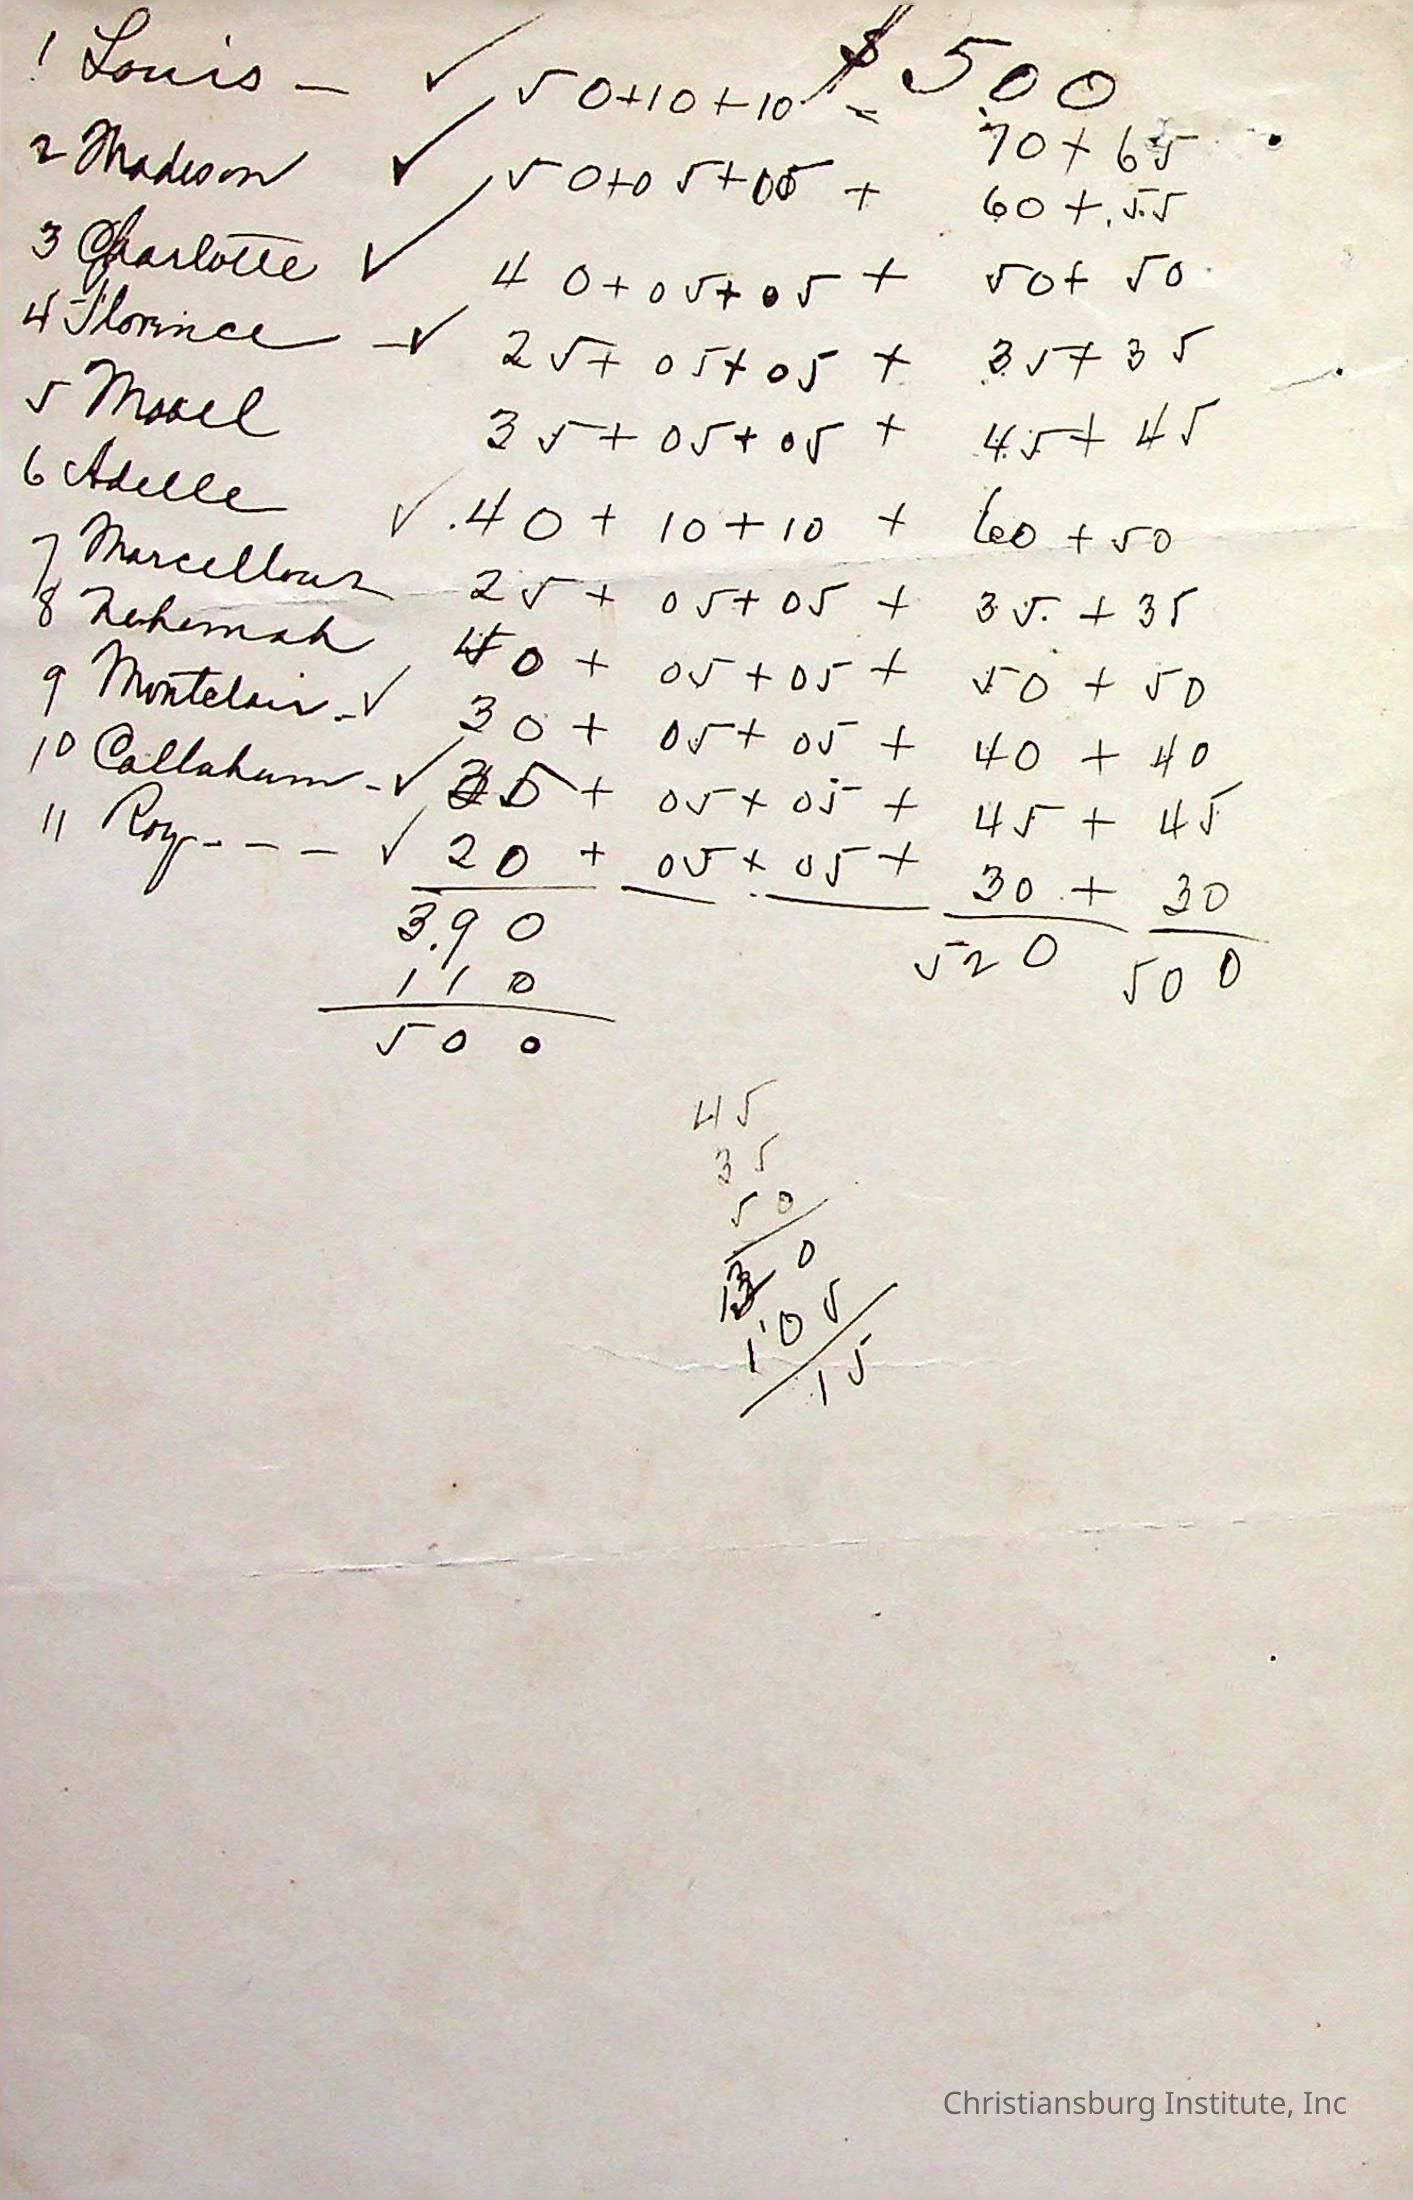 $ 500
1 Louis – ✓ 50+10+10 = 70+65
2 Madison ✓ 50+05+05 + 60+.55
3 Charlotte ✓ 40+05+05 + 50+50
4 Florince – ✓ 25+05+05 + 35+35
5 35+05+05 + 45+45
6 Adelle ✓ .40+10+10 + 60+50
7 Marcellous 25+05+05 + 35.+35
8 Nehemiah 40+05+05 + 50+50
9 Montclair – ✓ 30+05+05 + 40+40
10 Callaham – ✓ 35+05+05 + 45+45
11 Roy – – – ✓ 20+05+05 + 30+30
3.90 520 500
110
500
45
35
50
130
105
15
Christiansburg Institute, Inc